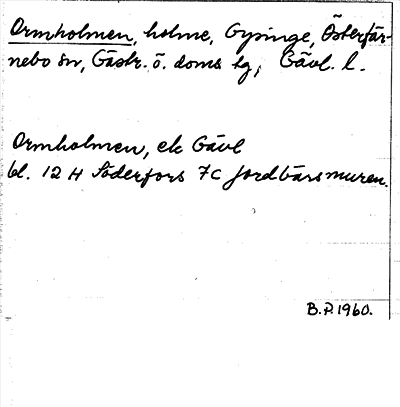 Ormholmen, holme, Gysinge, Österfär-
nebo sn, Gästr. ö. doms lg, Gävl. l.
Ormholmen, ek Gävl
bl. 12 H Söderfors 7c Jordbärsmuren.
B.P. 1960.